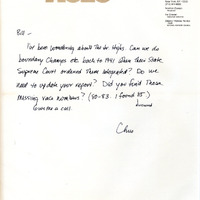 ACLU
Bill -
I've been wondering about the Jr. Highs. Can we do
boundary changes etc. back to 1951 when their State
Supreme Court ordered them integrated? Do we
need to update your report? Did you find those
missing race numbers? (80-83. I found 85)
Give me a call
Chris